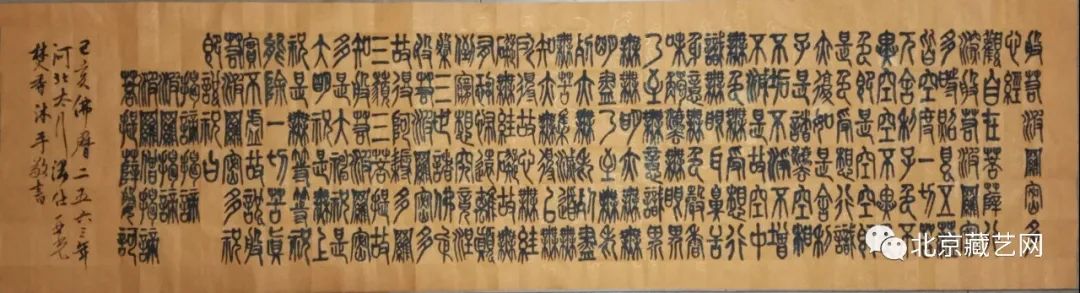 般若波羅蜜多
心經
觀自在菩薩行
深般若波羅蜜
多時照見五蘊
皆空度一切苦
厄舍利子色不
異空空不異色
色即是空空即
是色受想行識
亦復如是舍利
子是諸法空相
不生不滅
不垢不淨不增
不減是故空中
無色無受想行
識無眼耳鼻舌
身意無色聲香
味觸法無眼界
乃至無意識界
無無明亦無無
明盡乃至無老
死亦無老死盡
無苦集滅道無
智亦無得以無
所得故菩提薩
埵依般若波羅
蜜多故心無罣
礙無罣礙故無
有恐怖遠離顛
倒夢想究竟涅
槃三世諸佛依
般若波羅蜜多
故得阿耨多羅
三藐三菩提故
知般若波羅蜜
多是大祝是
大明祝是無上
祝是無等等祝
能除一切苦真
實不虛故說般
若波羅蜜多祝
即說祝曰
揭諦揭諦
波羅揭諦
波羅僧揭諦
菩提薩婆訶
己亥佛曆二五六三年
河北太行
焚香沐手敬書
北京藏艺网